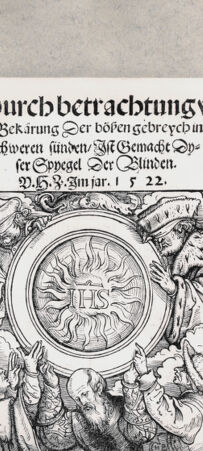 urch betrachtung v
Bekärung Der bößen gebreych in
chweren sünden/Ist Gemacht Dy-
ser Spyegel Der Blinden.
V.H.Z. Im jar. 1 5 22.
IHS